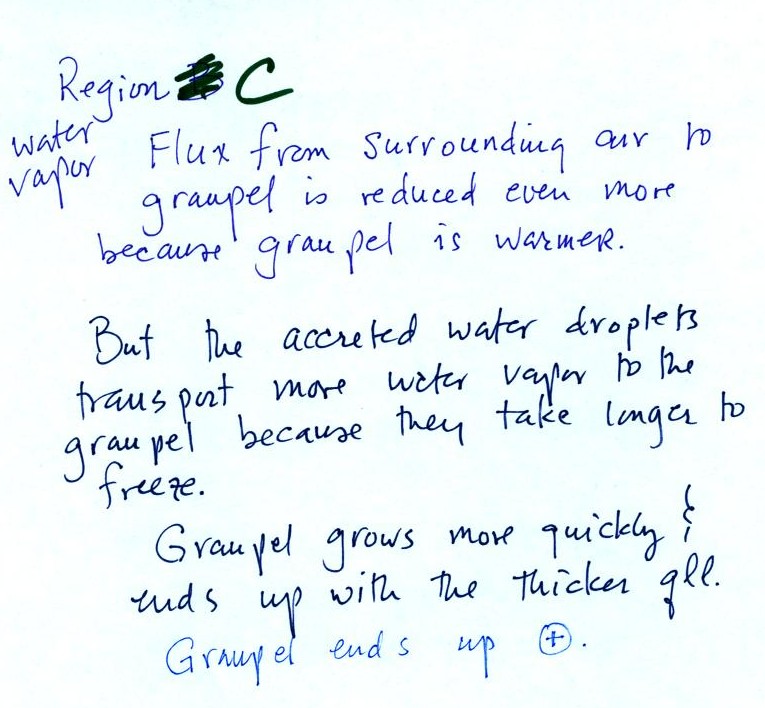 Region C
water
vapor
Flux from surrounding air to
graupel is reduced even more
because graupel is warmer.
But the accreted water droplets
transport more water vapor to the
graupel because they take longer to
freeze.
Graupel grows more quickly &
ends up with the thicker qll.
Graupel ends up ⊕.